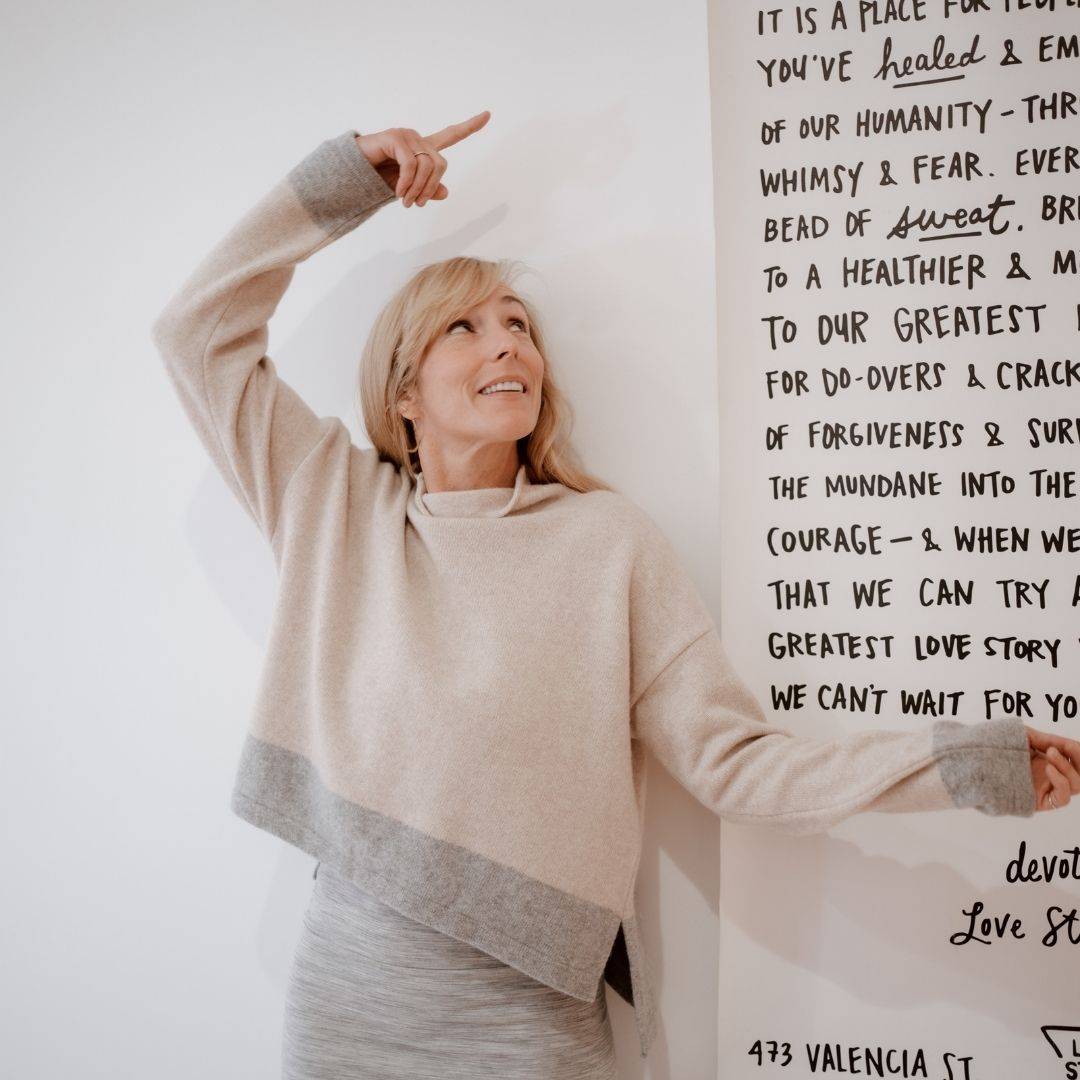 IT IS A PLACE FOR PEOPLE
YOU'VE healed & EM
OF OUR HUMANITY - THR
WHIMSY & FEAR. EVER
BEAD OF sweat. BRI
TO A HEALTHIER & M
TO OUR GREATEST
FOR DO-OVERS & CRACK
OF FORGIVENESS & SURR
THE MUNDANE INTO THE
COURAGE - & WHEN WE
THAT WE CAN TRY A
GREATEST LOVE STORY
WE CAN'T WAIT FOR YO
devot
Love St
473 VALENCIA ST